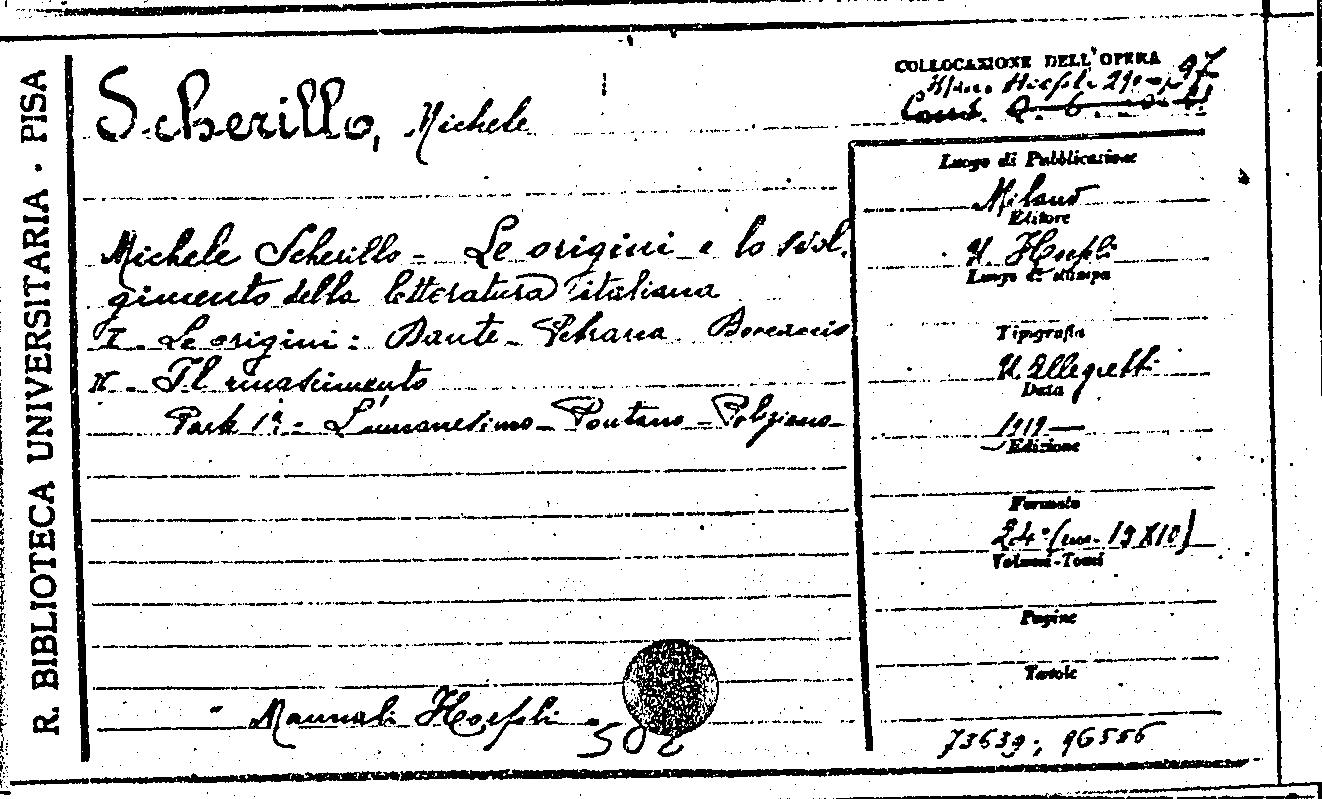 R. BIBLIOTECA UNIVERSITARIA - PISA
Scherillo, Michele
COLLOCAZIONE DELL'OPERA
Man. Hoepli 29 97
Michele Scherillo - Le origini e lo svol-
gimento della letteratura italiana
I - Le origini: Dante - Petrarca Boccaccio
II - Il rinascimento
Parte 1ª - L'umanesimo - Pontano - Poliziano -
Luogo di Pubblicazione
Milano
Editore
U. Hoepli
Luogo di stampa
Tipografia
U. Allegretti
Data
1919 —
Edizione
Formato
24° (cm. 19X10)
Volumi-Tomi
Pagine
Tavole
- Manuali Hoepli -
502
73639; 96556